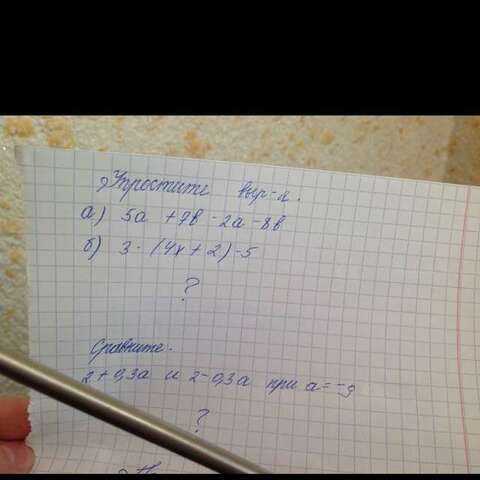 Упростите выр-я.
а) 5а + 7в - 2а - 8в
б) 3 · (4х + 2) - 5
?
Сравните.
2 + 0,3а и 2 - 0,3а при а = -9
?